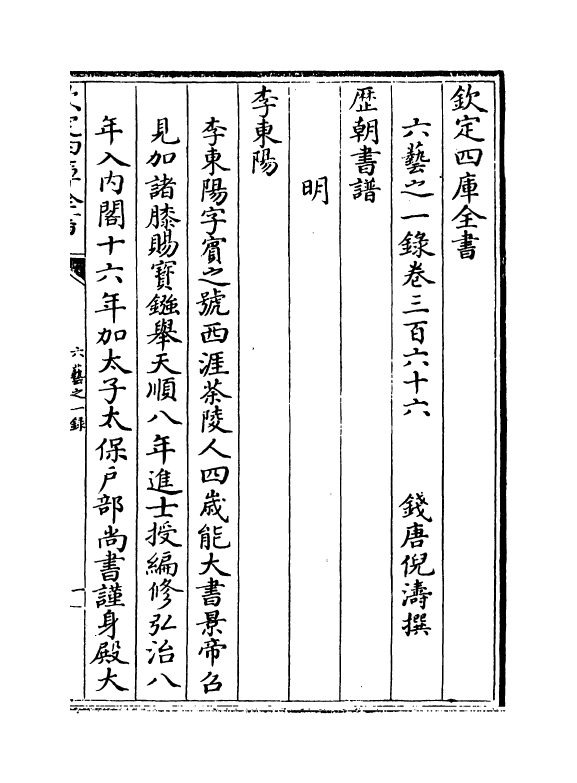 欽定四庫全書
六藝之一錄卷三百六十六　　錢唐倪濤撰
歷朝書譜
明
李東陽
李東陽字賓之號西涯茶陵人四歲能大書景帝召
見加諸膝賜寶鏹舉天順八年進士授編修弘治八
年入内閣十六年加太子太保戶部尚書謹身殿大
六藝之一錄